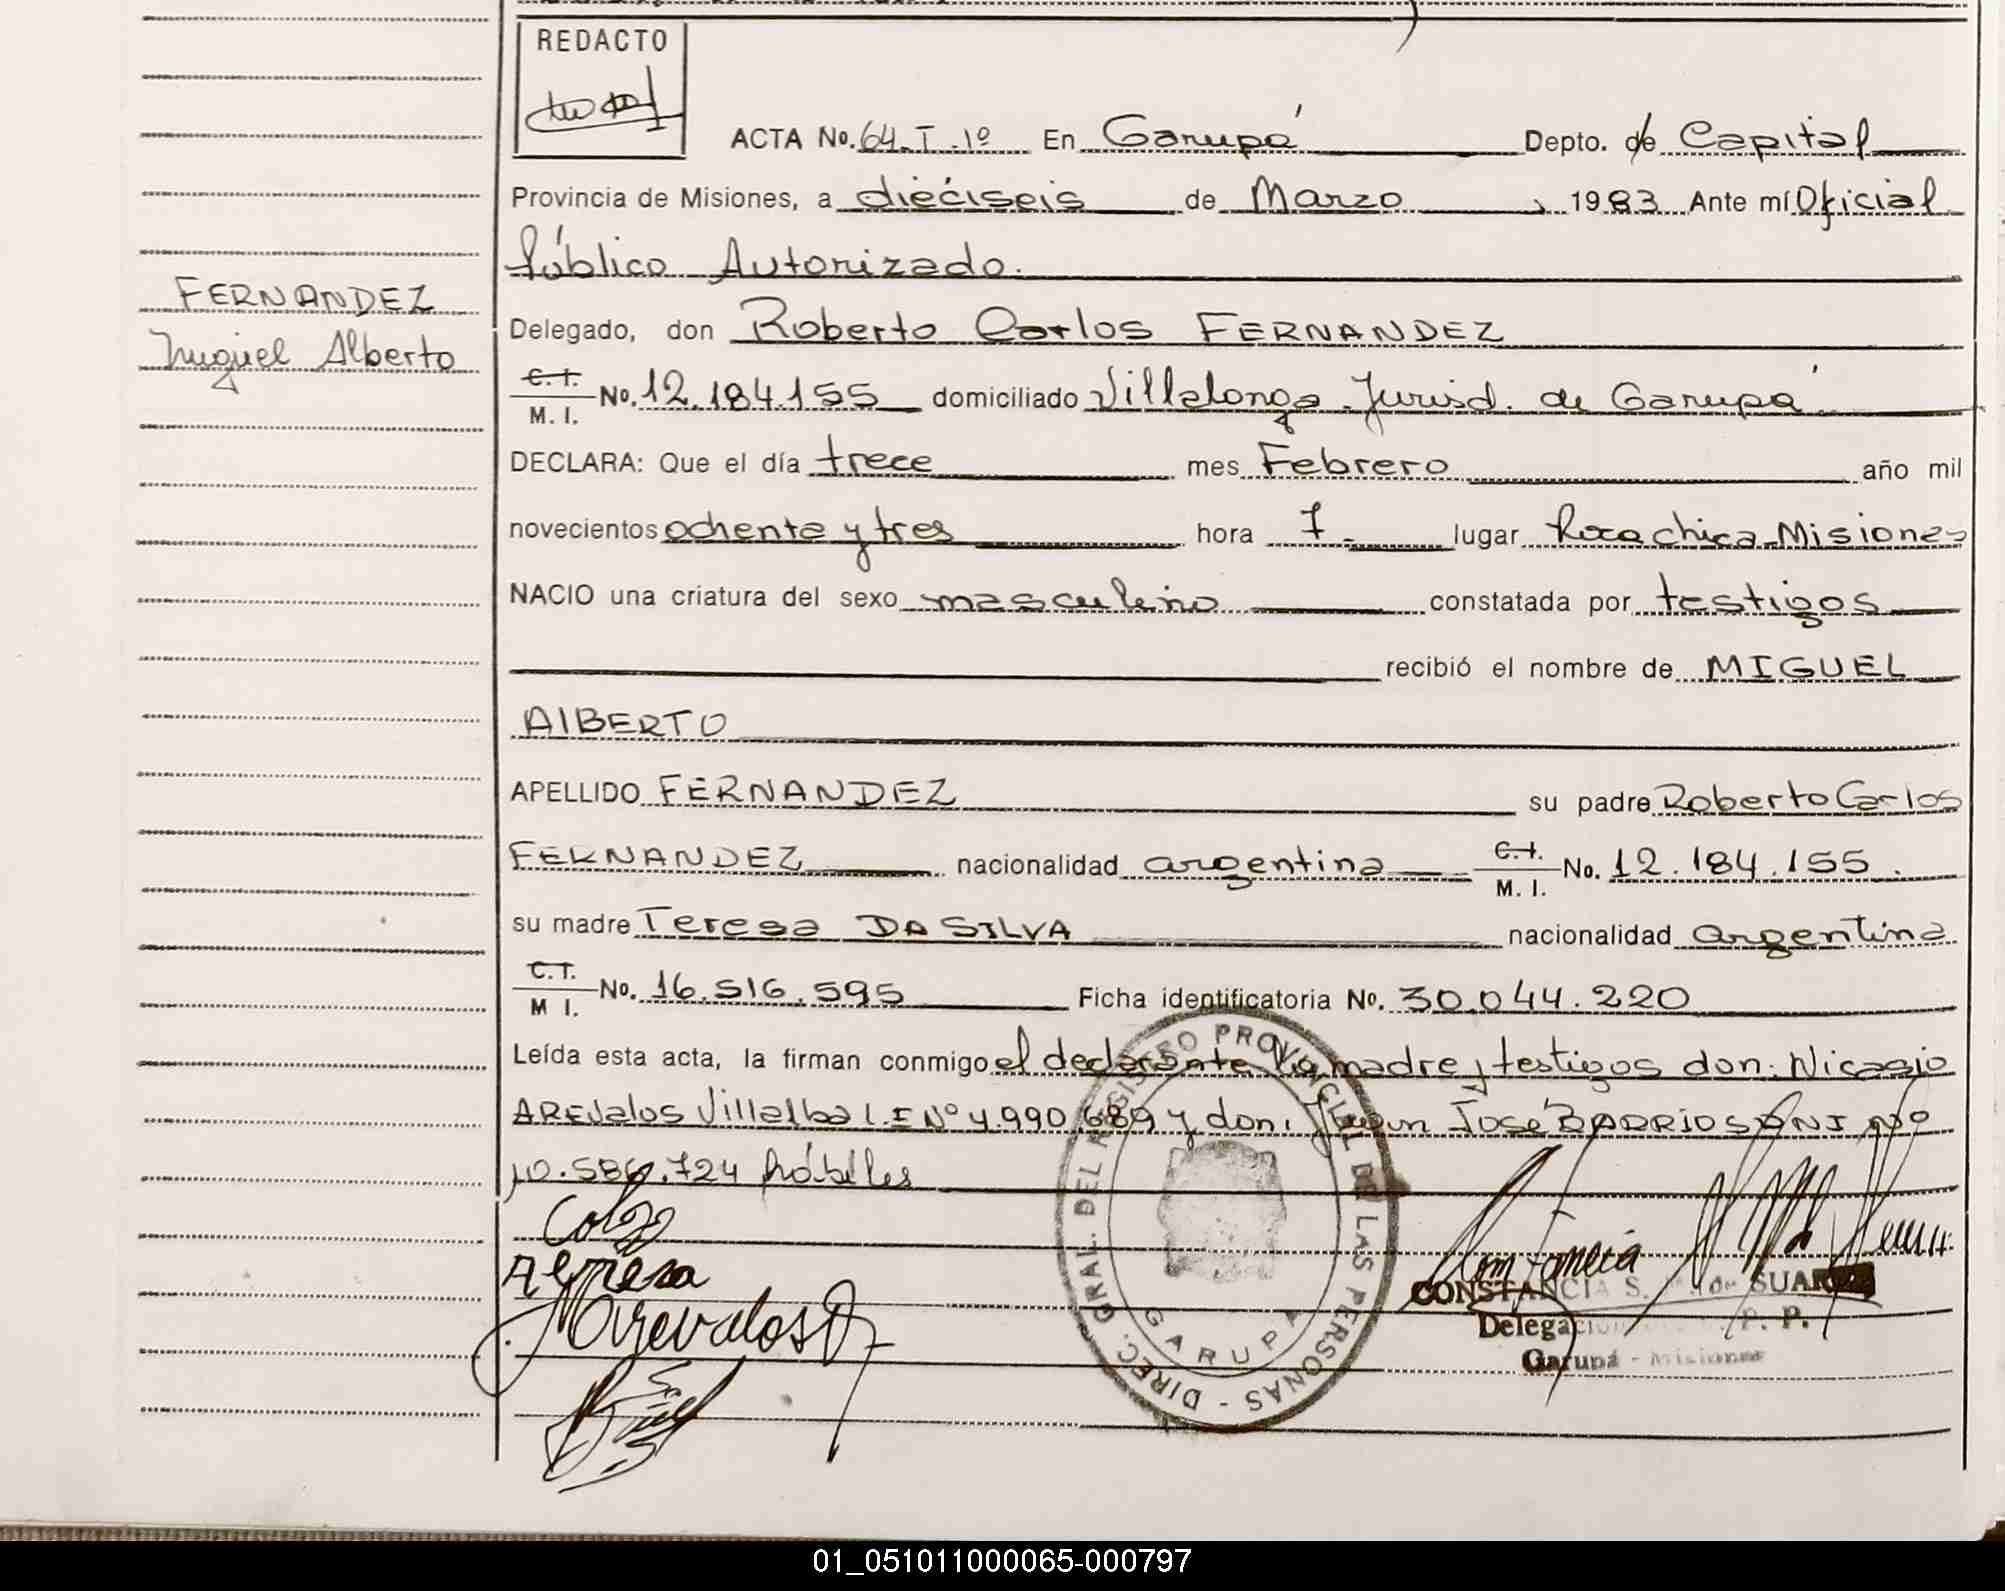 REDACTO
ACTA No. 64.T.1º En Garupá Depto. de Capital
Provincia de Misiones, a dieciseis de Marzo , 1983 Ante mí Oficial
Público Autorizado.
FERNANDEZ
Miguel Alberto
Delegado, don Roberto Carlos FERNANDEZ
C.I.
M. I. No. 12.184.155 domiciliado Villalonga Jurisd. de Garupá
DECLARA: Que el día trece mes Febrero año mil
novecientos ochenta y tres hora 7 lugar Roca chica-Misiones
NACIO una criatura del sexo masculino constatada por testigos
recibió el nombre de MIGUEL
AlBERTO
APELLIDO FERNANDEZ su padre Roberto Carlos
FERNANDEZ nacionalidad argentina C.I. M. I. No. 12.184.155.
su madre Teresa DA SILVA nacionalidad argentina
C.I. M I. No. 16.516.595 Ficha identificatoria No. 30.044.220
Leída esta acta, la firman conmigo el declarante la madre y testigos don: Nicasio
AREValos Villalba L.E Nº 4.990.689 y don: Juan José BARRIOS DNI Nº
10.586.724 hábiles
Teresa
Arevalos
DIREC. GRAL. DEL REGISTRO PROVINCIAL DE LAS PERSONAS - GARUPA
CONSTANCIA S. de SUAREZ
Delegación R. P. P.
Garupá - Misiones
01_051011000065-000797